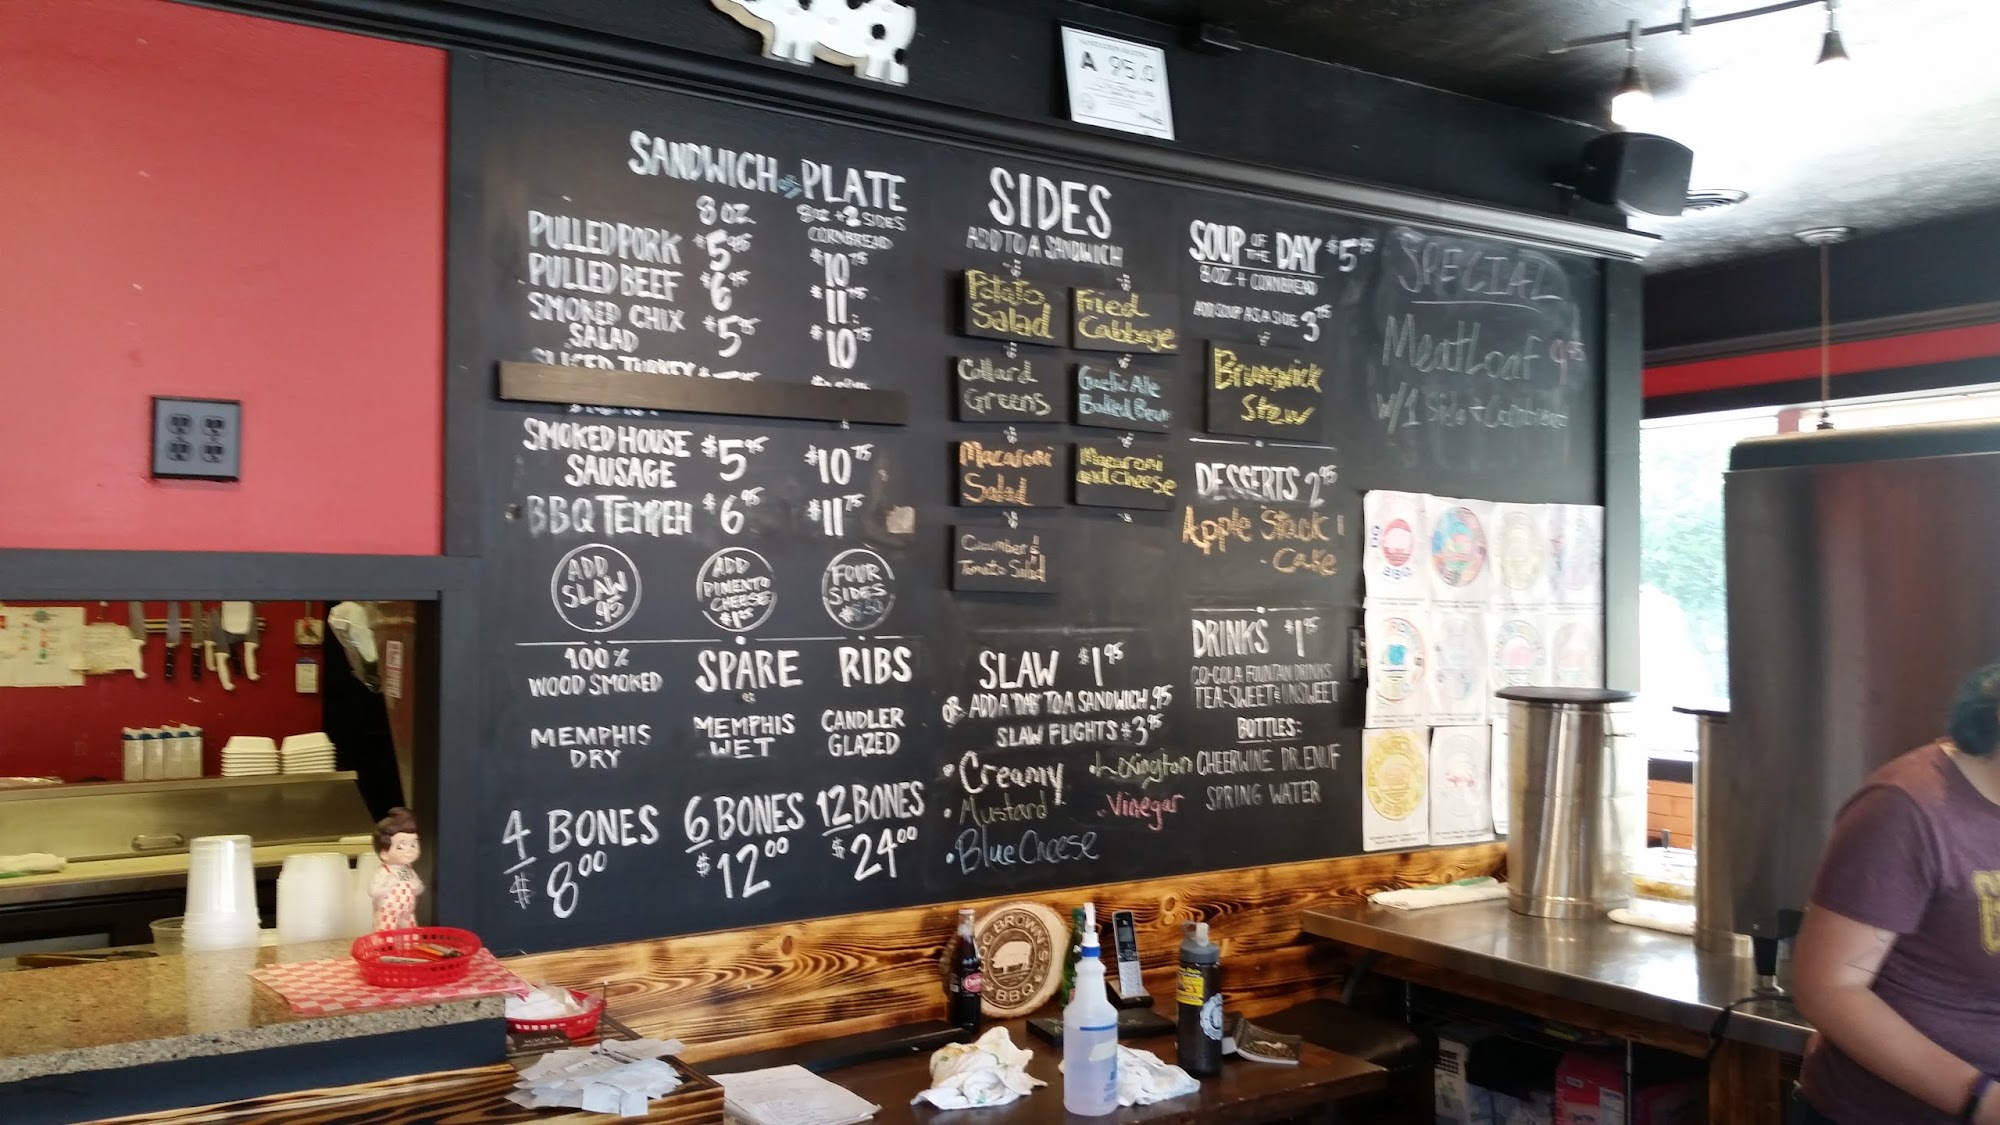 A 95.0
SANDWICH or PLATE
8 OZ. 8 OZ + 2 SIDES
CORNBREAD
PULLED PORK $5.95 $10.75
PULLED BEEF $6.95 $11.75
SMOKED CHIX SALAD $5.95 $10.75
SLICED TURKEY
SMOKED HOUSE SAUSAGE $5.95 $10.75
BBQ TEMPEH $6.95 $11.75
ADD SLAW .95
ADD PIMENTO CHEESE $1.25
FOUR SIDES
100% WOOD SMOKED
SPARE RIBS
MEMPHIS DRY
MEMPHIS WET
CANDLER GLAZED
4 BONES $8.00
6 BONES $12.00
12 BONES $24.00
SIDES
ADD TO A SANDWICH
Potato Salad
Fried Cabbage
Collard Greens
Gaelic Ale Baked Beans
Macaroni Salad
Macaroni and Cheese
Cucumber & Tomato Salad
SLAW $1.95
OR ADD A "DAB" TO A SANDWICH .95
SLAW FLIGHTS $3.95
• Creamy
• Lexington
• Mustard
• Vinegar
• Blue Cheese
SOUP OF THE DAY $5.95
8 OZ + CORNBREAD
ADD SOUP AS A SIDE 3.75
Brunswick Stew
DESSERTS 2.95
Apple Stack Cake
DRINKS $1.95
CO-COLA FOUNTAIN DRINKS
TEA: SWEET & UNSWEET
BOTTLES:
CHEERWINE DR. ENUF
SPRING WATER
SPECIAL
Meatloaf 9.95
w/1 Side + Cornbread
BROWN'S
BBQ